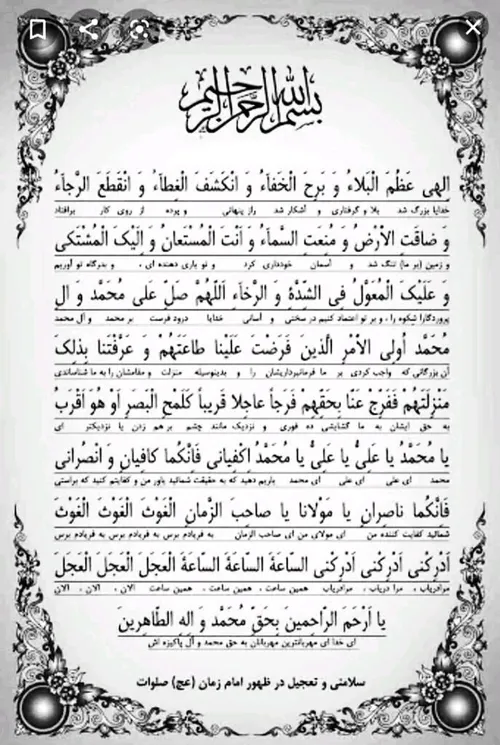 بسم الله الرحمن الرحیم
اِلهی عَظُمَ الْبَلاءُ وَ بَرِحَ الْخَفآءُ وَ انْکَشَفَ الْغِطآءُ وَ انْقَطَعَ الرَّجآءُ
خدایا بزرگ شد بلا و گرفتاری و آشکار شد راز پنهانی و پرده از روی کار برافتاد
وَ ضاقَتِ الْاَرْضُ وَ مُنِعَتِ السَّمآءُ وَ اَنْتَ الْمُسْتَعانُ وَ اِلَیْکَ الْمُشْتَکی
و زمین (بر ما) تنگ شد و آسمان خودداری کرد و تو یاری دهنده ای ، و بدرگاه تو آوریم
وَ عَلَیْکَ الْمُعَوَّلُ فِی الشِّدَّةِ وَ الرَّخآءِ اَللّهُمَّ صَلِّ عَلی مُحَمَّد وَ الِ
پروردگارا شکوه را ، و بر تو اعتماد کنیم در سختی و آسانی خدایا درود فرست بر محمد و آل محمد
مُحَمَّد اُولِی الاَْمْرِ الَّذینَ فَرَضْتَ عَلَیْنا طاعَتَهُمْ وَ عَرَّفْتَنا بِذلِکَ
آن بزرگانی که واجب کردی بر ما فرمانبرداریشان را و بدینوسیله منزلت و مقامشان را به ما شناساندی
مَنْزِلَتَهُمْ فَفَرِّجْ عَنّا بِحَقِّهِمْ فَرَجاً عاجِلا قَریباً کَلَمْحِ الْبَصَرِ اَوْ هُوَ اَقْرَبُ
به حق ایشان به ما گشایشی ده فوری و نزدیک مانند چشم بر هم زدن یا نزدیکتر ای
یا مُحَمَّدُ یا عَلِیُّ یا عَلِیُّ یا مُحَمَّدُ اِکْفِیانی فَاِنَّکُما کافِیانِ وَ انْصُرانی
محمد ای علی ای علی ای محمد یاریم دهید که به حقیقت شمائید یاور من و کفایتم کنید که براستی
فَاِنَّکُما ناصِرانِ یا مَوْلانا یا صاحِبَ الزَّمانِ الْغَوْثَ الْغَوْثَ الْغَوْثَ
شمائید کفایت کننده من ای مولای من ای صاحب الزمان به فریادم برس به فریادم برس به فریادم برس
اَدْرِکْنی اَدْرِکْنی اَدْرِکْنی السّاعَةَ السّاعَةَ السّاعَةَ الْعَجَلَ الْعَجَلَ الْعَجَلَ
مرادریاب ، مرا دریاب ، مرادریاب همین ساعت ، همین ساعت ، همین ساعت الان ، الان ، الان
یا اَرْحَمَ الرّاحِمینَ بِحَقِّ مُحَمَّد وَ الِهِ الطّاهِرینَ
ای خدا ای مهربانترین مهربانان به حق محمد و آل پاکیزه اش
سلامتی و تعجیل در ظهور امام زمان (عج) صلوات